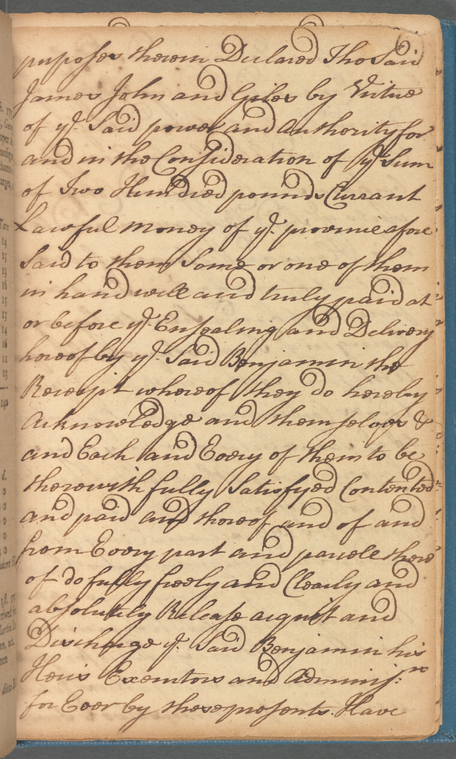 purposes therein Declared The Said
James John and Giles by Virtue
of ye. Said power and Authority for
and in the Consideration of ye. Sum
of Two Hundred pounds Currant
Lawful money of ye. province afore
Said to them Some or one of them
in hand well and truly paid at
or before ye. Ensealing and Delivery
hereof by ye. Said Benjamin the
Receipt whereof they do hereby
Acknowledge and themselves &
and Each and Every of them to be
therewith fully Satisfyed Contented
and paid and thereof and of and
from Every part and parcele there
of do fully freely and Clearly and
absolutely Release acquit and
Discharge ye. Said Benjamin his
Heirs Executors and Adminisrs.
for Ever by these presents. Have